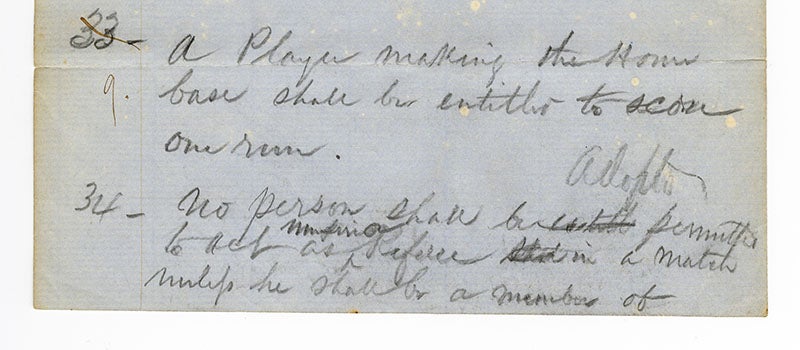 33 - A Player making the Home
9. base shall be entitled to score
one run.
Adopted
34 - No person shall be permitted
umpire or
to act as Referee in a match
unless he shall be a member of